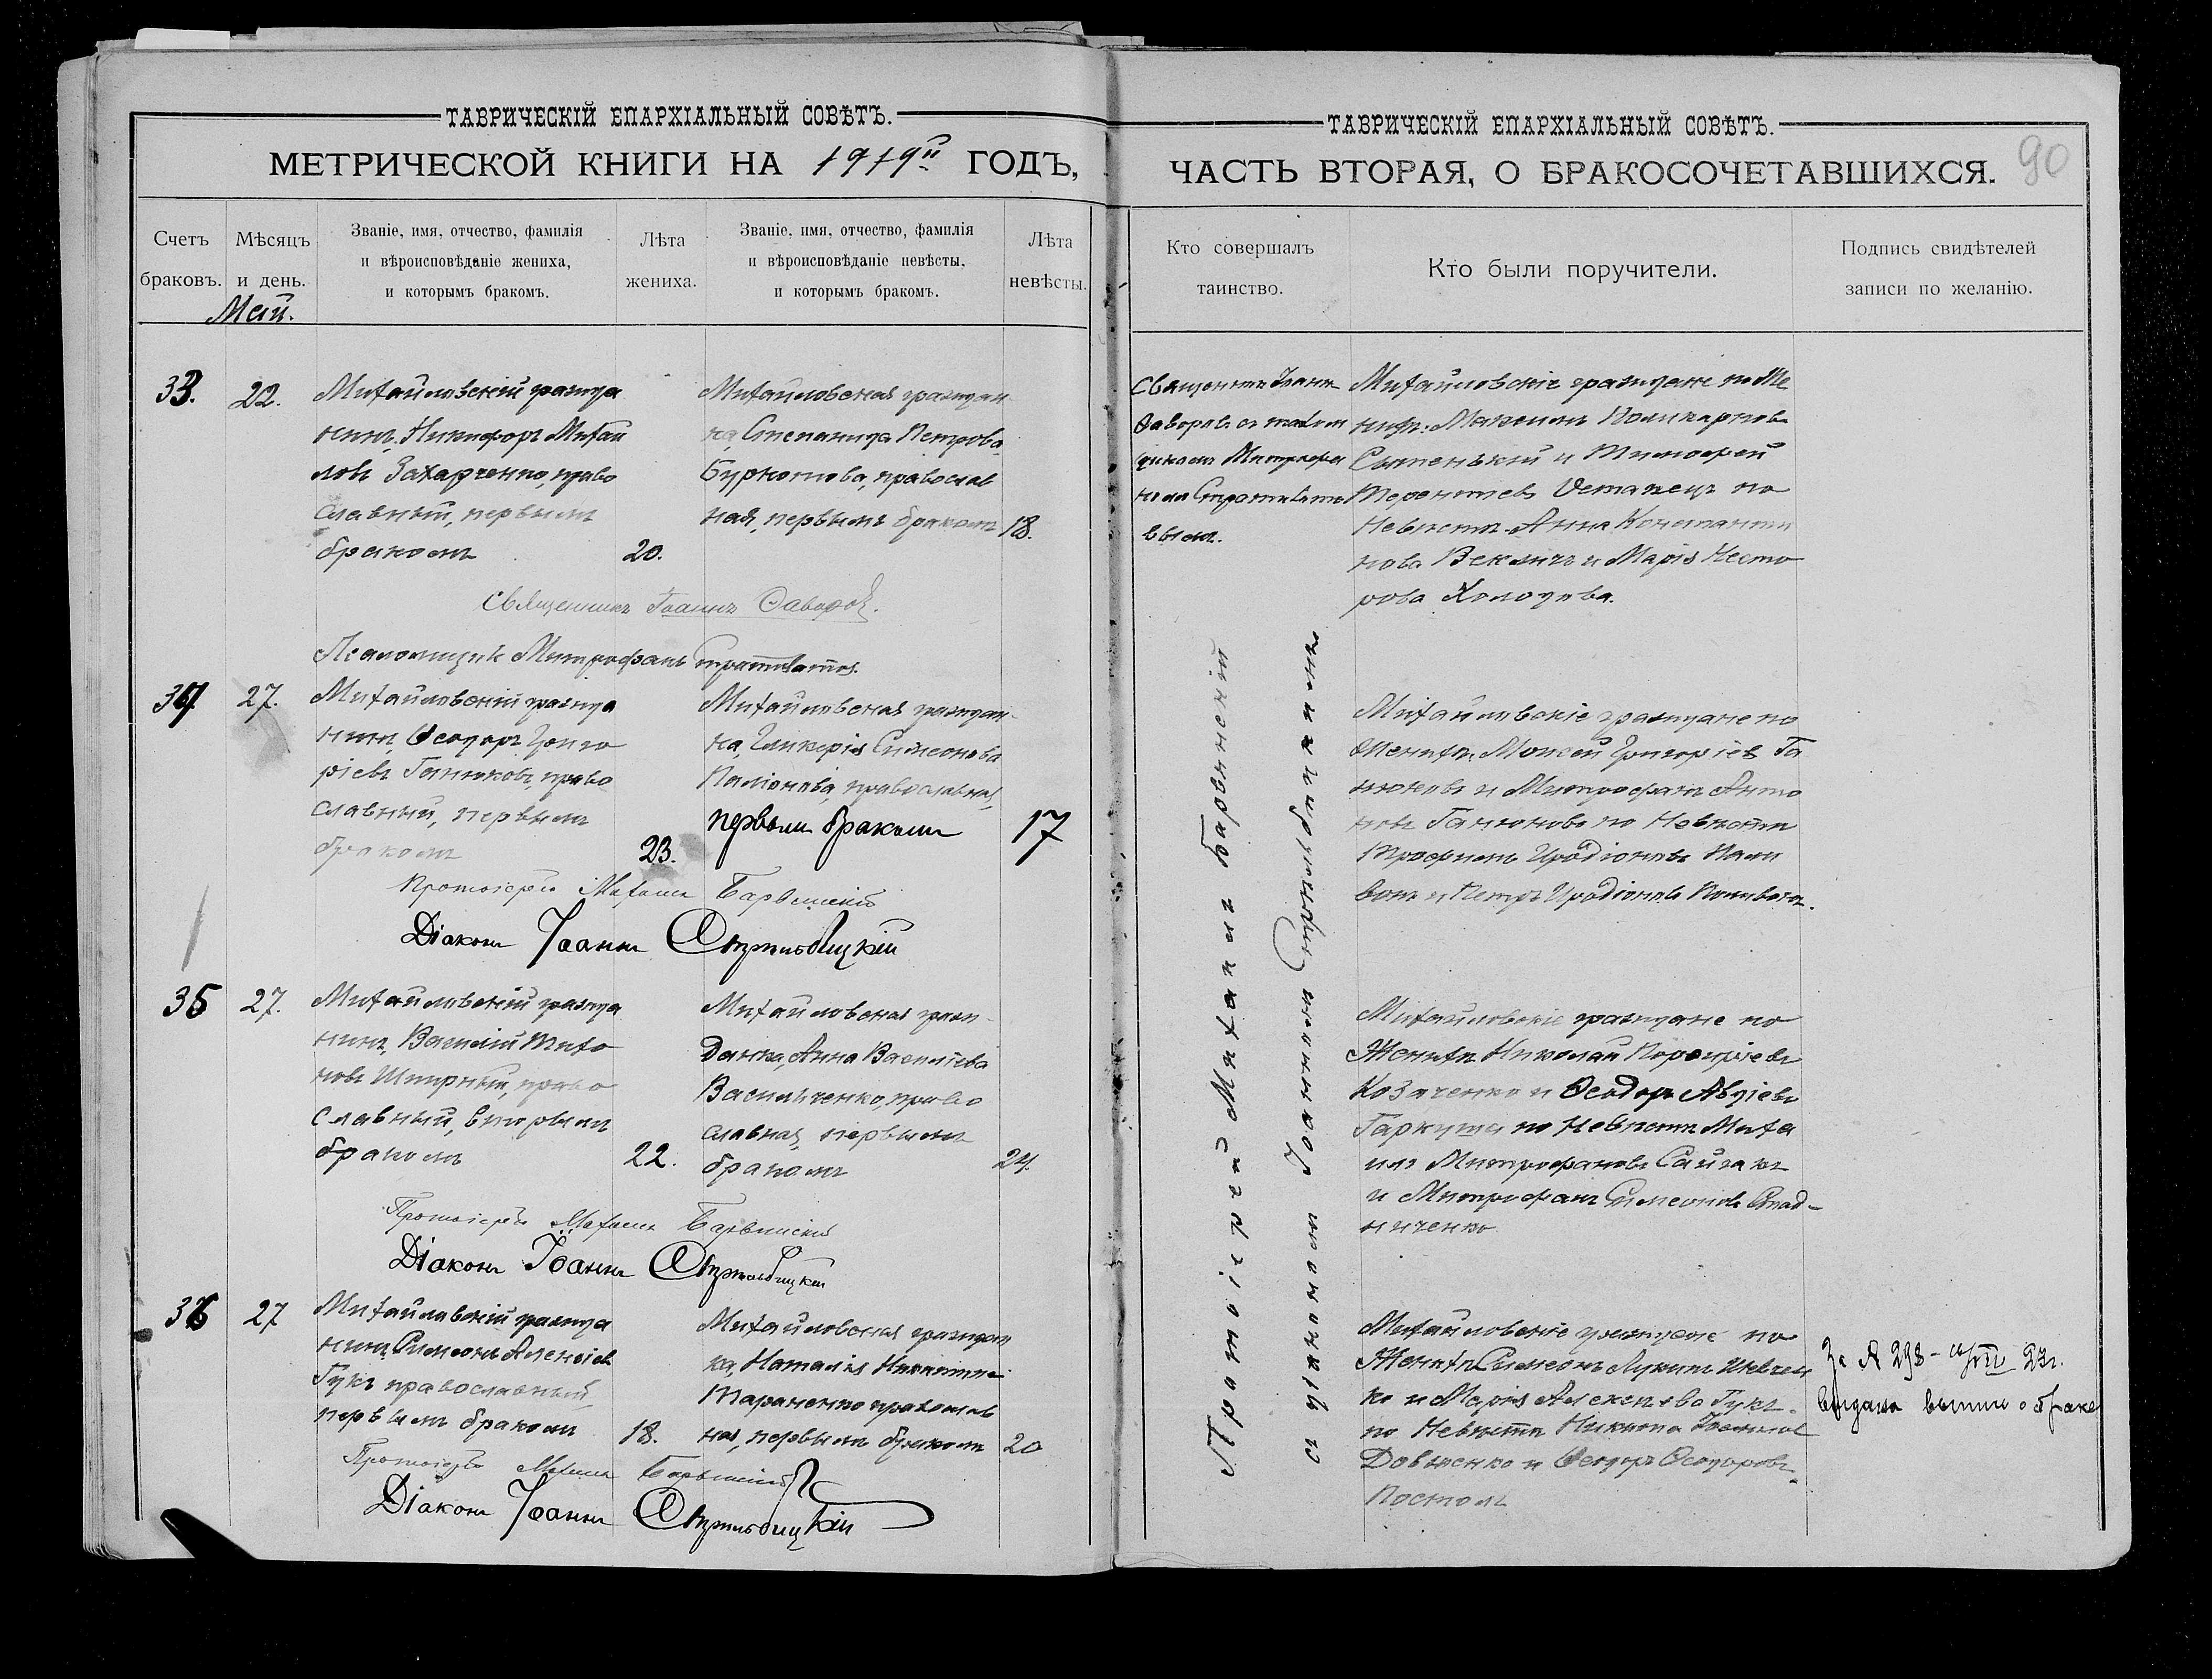 ТАВРИЧЕСКІЙ ЕПАРХІАЛЬНЫЙ СОВѢТЪ.
МЕТРИЧЕСКОЙ КНИГИ НА 1919й ГОДЪ,
Счетъ браковъ.
Мѣсяцъ и день.
Званіе, имя, отчество, фамилія
и вѣроисповѣданіе жениха,
и которымъ бракомъ.
Лѣта жениха.
Званіе, имя, отчество, фамилія
и вѣроисповѣданіе невѣсты,
и которымъ бракомъ.
Лѣта невѣсты.
Май.
33.
22.
Михайловскій гражда
нинъ, Никифоръ Михаи
ловъ Захарченко, право
славный, первымъ
бракомъ
20.
Михайловская граждан
ка, Степанида Петрова
православ
ная, первымъ бракомъ
18.
Священникъ Іоаннъ
Псаломщикъ Митрофанъ
34
27.
Михайловскій гражда
нинъ, Ѳеодоръ Григо
ріевъ Ганюковъ, право
славный, первымъ
бракомъ
23.
Михайловская граждан
ка, Гликерія Симеонова
православная,
первымъ бракомъ
17
Протоіерей Михаилъ Барвинскій
Діаконъ Іоаннъ
35
27.
Михайловскій гражда
нинъ, Василій Тихо
новъ право
славный, вторымъ
бракомъ
22.
Михайловская граж
данка, Анна Васильева
Васильченко, право
славная, первымъ
бракомъ
24.
Протоіерей Михаилъ Барвинскій
Діаконъ Іоаннъ
36
27
Михайловскій гражда
нинъ Симеонъ Алексіевъ
Гукъ православный
первымъ бракомъ
18.
Михайловская граждан
ка, Наталія Никитина
Тараненко православ
ная, первымъ бракомъ
20
Протоіерей Михаилъ Барвинскій
Діаконъ Іоаннъ
ТАВРИЧЕСКІЙ ЕПАРХІАЛЬНЫЙ СОВѢТЪ.
ЧАСТЬ ВТОРАЯ, О БРАКОСОЧЕТАВШИХСЯ.
90
Кто совершалъ таинство.
Кто были поручители.
Подпись свидѣтелей
записи по желанію.
Священникъ Іоаннъ
съ псалом
щикомъ Митрофа
номъ
вымъ.
Михайловскіе граждане по Же
нихѣ: Максимъ Поликарповъ
и Тимофей
Терентіевъ Остапецъ по
Невѣстѣ Анна Константи
нова Векличъ и Марія Несто
рова Холодова.
Протоіерей Михаилъ Барвинскій
съ діакономъ Іоанномъ
Михайловскіе граждане по
Женихѣ Моисей Григоріевъ Га
нюковъ и Митрофанъ Анто
новъ Ганюковъ по Невѣстѣ
Трофимъ Иродіоновъ Поли
вода и Петръ Иродіоновъ Поливода.
Михайловскіе граждане по
Женихѣ Николай Порфиріевъ
Козаченко и Ѳеодоръ Авдіевъ
Гаркуша по Невѣстѣ Миха
илъ Митрофановъ Сайгакъ
и Митрофанъ Симеоновъ
ниченко
Михайловскіе граждане по
Женихѣ Симеонъ Лукинъ Шевчен
ко и Марія Алексѣева Гукъ.
по Невѣстѣ Никита
Довженко и Ѳеодоръ Ѳеодоровъ
Постолъ
За № 298 23г.
выдана о браке